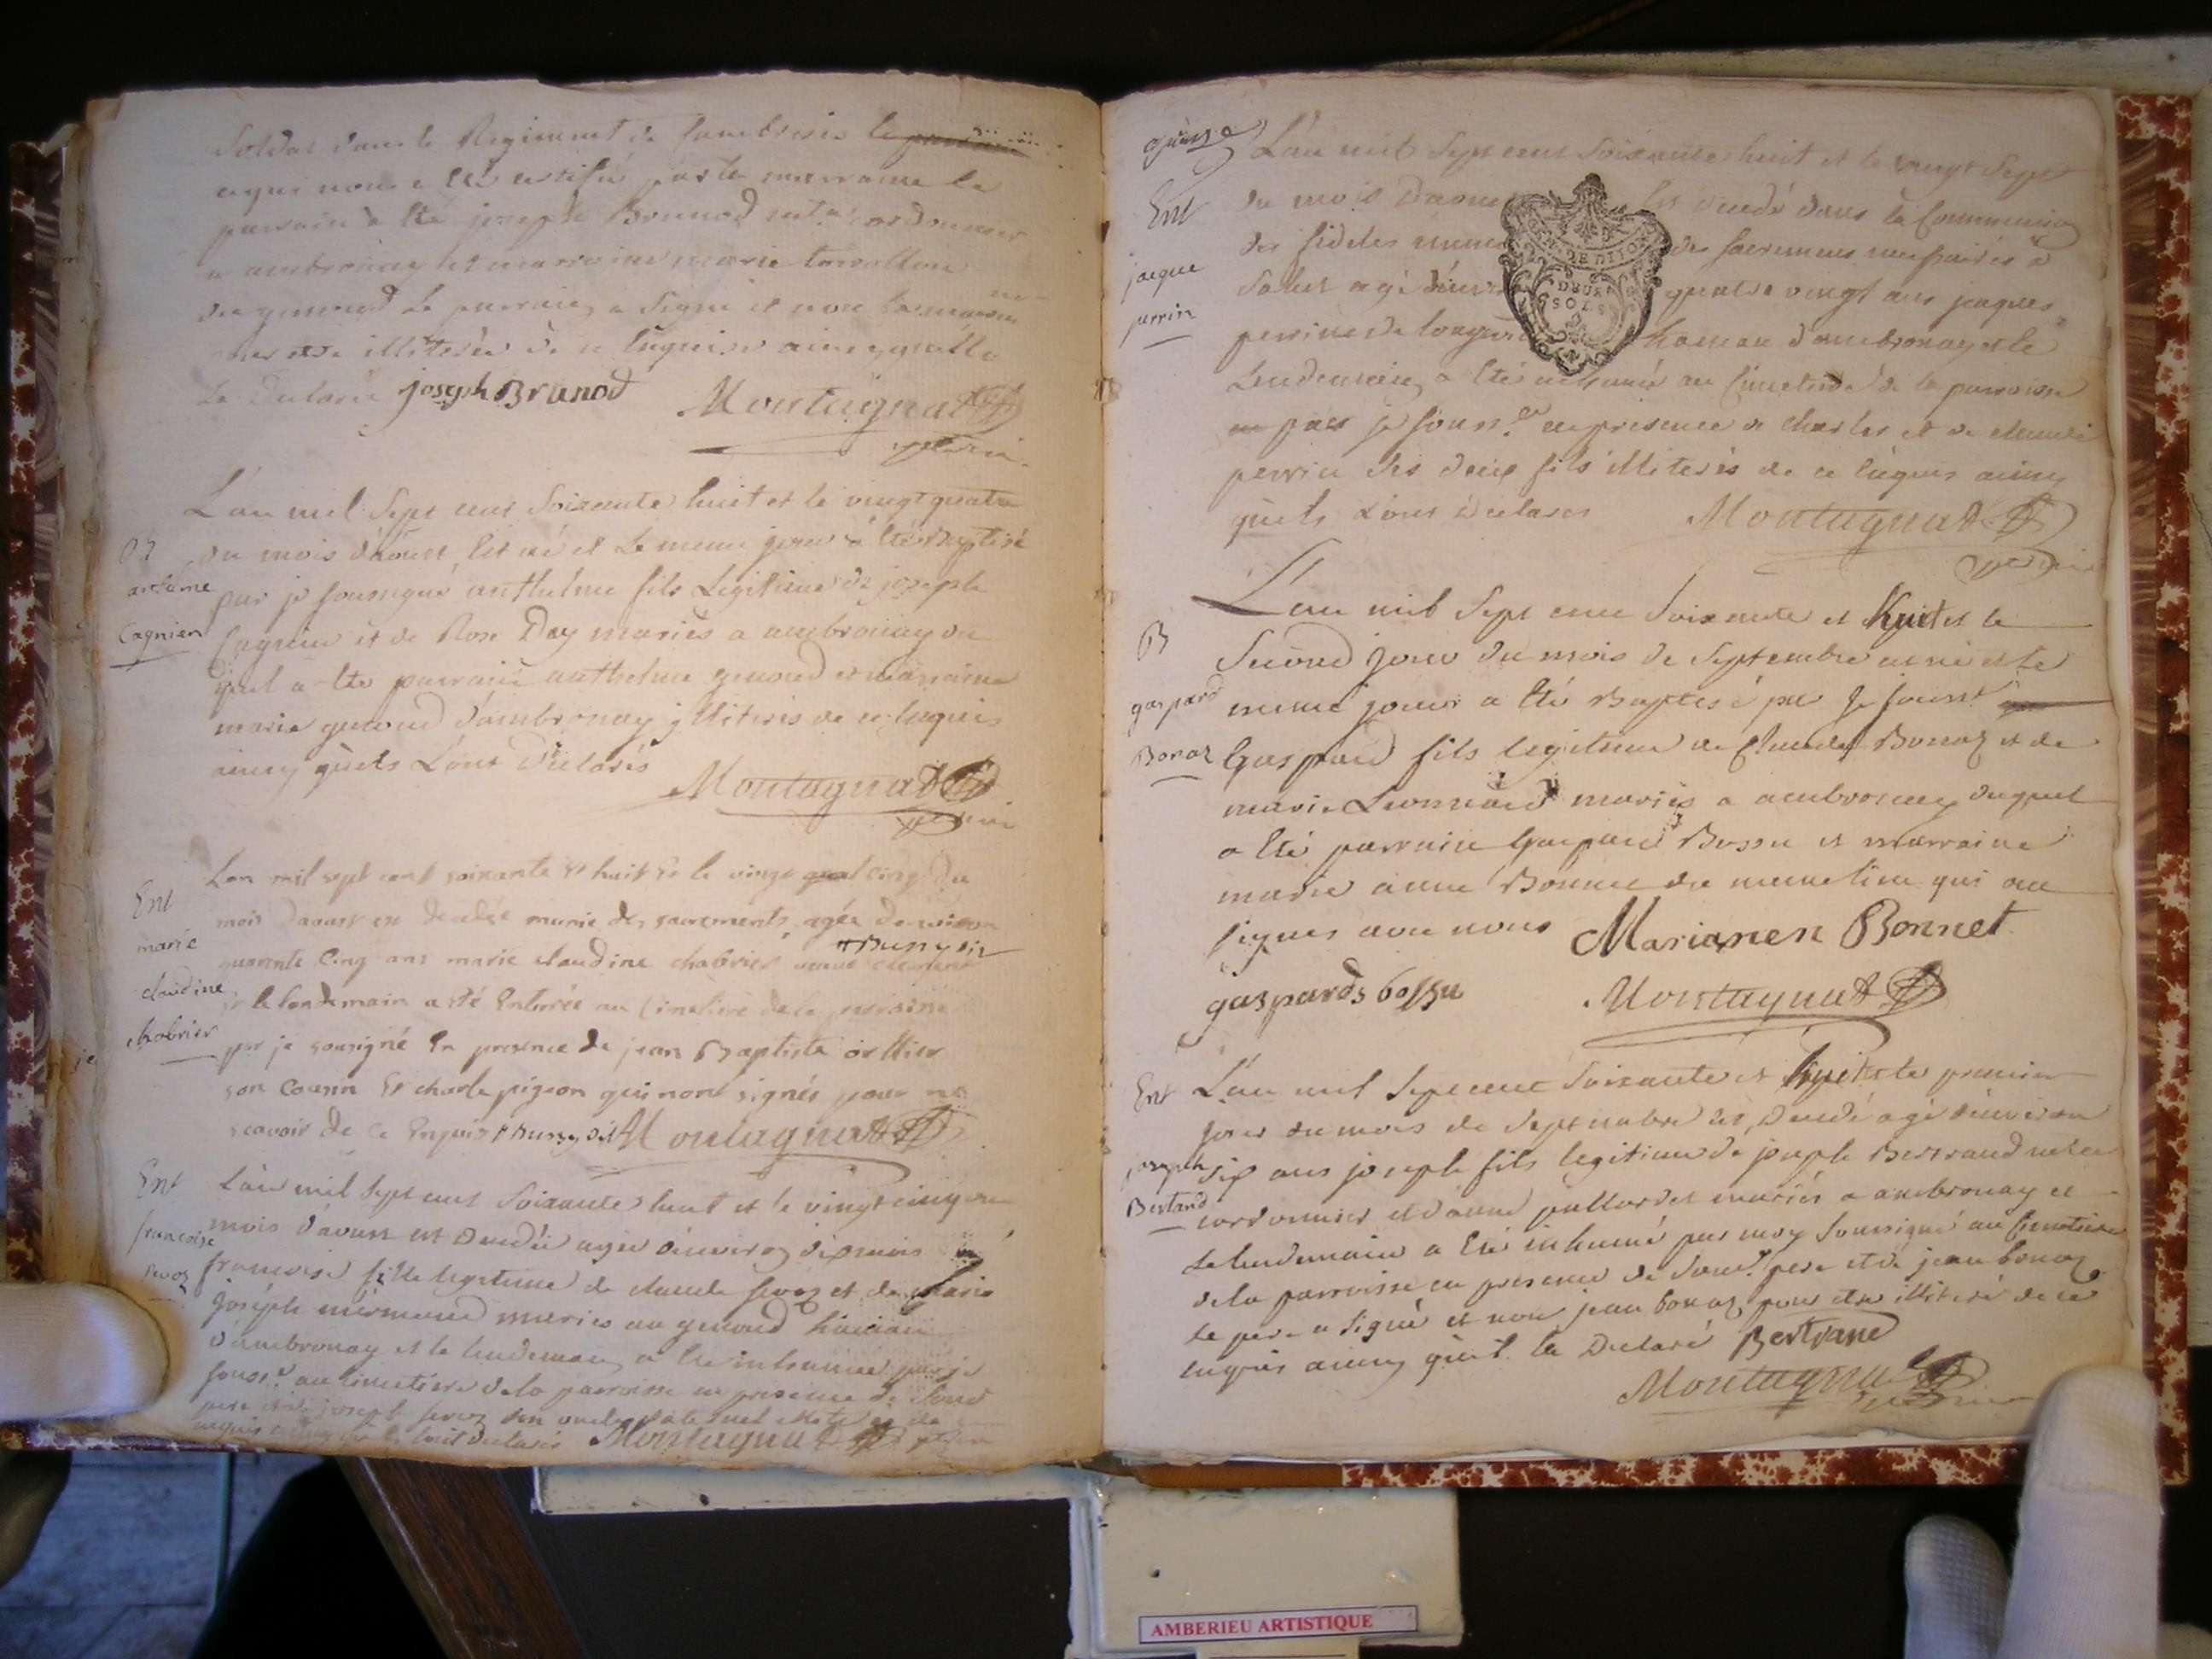 Soldat dans le Regiment de
ce qui nous a été certifié par la marraine le
parrain a été joseph Brunod mtre cordonnier
a ambronay et marraine marie
du genoud Le parrain a signé et non la
pour etre illiterée de ce enquise ainsy quelle
La Déclaré joseph Brunod Montagnat
L'an mil Sept cent Soixante huit et le vingt quatre
du mois d'aoust Est né et Le meme jour a été Baptisé
par je soussigné anthelme fils Legitime de joseph
Cagnien et de Rose Dey mariés a ambronay du
quel a été parrain anthelme genoud et marraine
marie genoud d'ambronay illiterés de ce enquis
ainsy qu'ils L'ont Déclarés
Montagnat
B
antelme
Cagnien
Lan mil sept cent soixante et huit et le vingt cinq du
mois daoust est decedée munie des sacrements, agée denviron
quarente Cinq ans marie claudine chabrier
et le landemain a eté Enterrée au Cimetiere de la parroisse
par je sousigné En presence de jean Baptiste orsttier
son Cousin Et charle pigeon qui nont signés pour ne
scavoir de ce Enquis Montagnat
Ent
marie
claudine
chabrier
L'an mil Sept cent Soixante huit et le vingt cinq du
mois d'aoust est Decedée agée d'environ dix mois
francoise fille legitime de claude fevoz et de marie
Joseph mermand mariés au genoud hameau
d'ambronay et le lendemain a été inhumée par je
souss.é au cimetiere de la parroisse en presence de
Montagnat
Ent
francoise
fevoz
quinze
L'an mil Sept cent Soixante huit et le vingt Sept
du mois D'aoust Est Decedé dans la Communion
des fideles muni des sacremens necessaires a
Salut agé d'environ quatre vingt ans jaques
perrin de hameau d'ambronay et le
Lendemain a été inhumé au Cimetiere de la parroisse
par je souss.é en presence de charles et de claude
perrin ses deux fils illiterés de ce enquis ainsy
qu'ils L'ont Déclarés Montagnat
Ent
jacque
perrin
L'an mil Sept cent Soixante et huit et le
Second jour du mois de Septembre est né et le
meme jour a été Baptisé par Je souss.é
Gaspard fils legitime de Claude Bonaz et de
marie Leonnard mariés a ambronay duquel
a été parrain Gaspard Bossu et marraine
marie anne Bonnet de qui ont
signés avec nous Marianen Bonnet
gaspards bossu Montagnat
B
gaspard
Bonaz
L'an mil Sept cent Soixante et huit et le premier
jour du mois de Septembre est Decedé agé d'environ
six ans joseph fils legitime de joseph Bertrand mtre
cordonnier et d'anne mariés a ambronay et
Le lendemain a été inhumé par moy soussigné au Cimetiere
de la parroisse en presence de pere et de jean bonaz
le pere a signé et non jean bonaz pour etre illiteré de ce
enquis ainsy qu'il la Déclaré Bertrand
Montagnat
Ent
joseph
Bertand
DE DIJON
DEUX
SOLS
AMBERIEU ARTISTIQUE